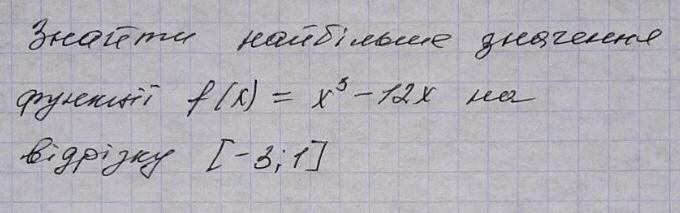 Знайти найбільше значення
функції f(x) = x³ - 12x на
відрізку [-3; 1]